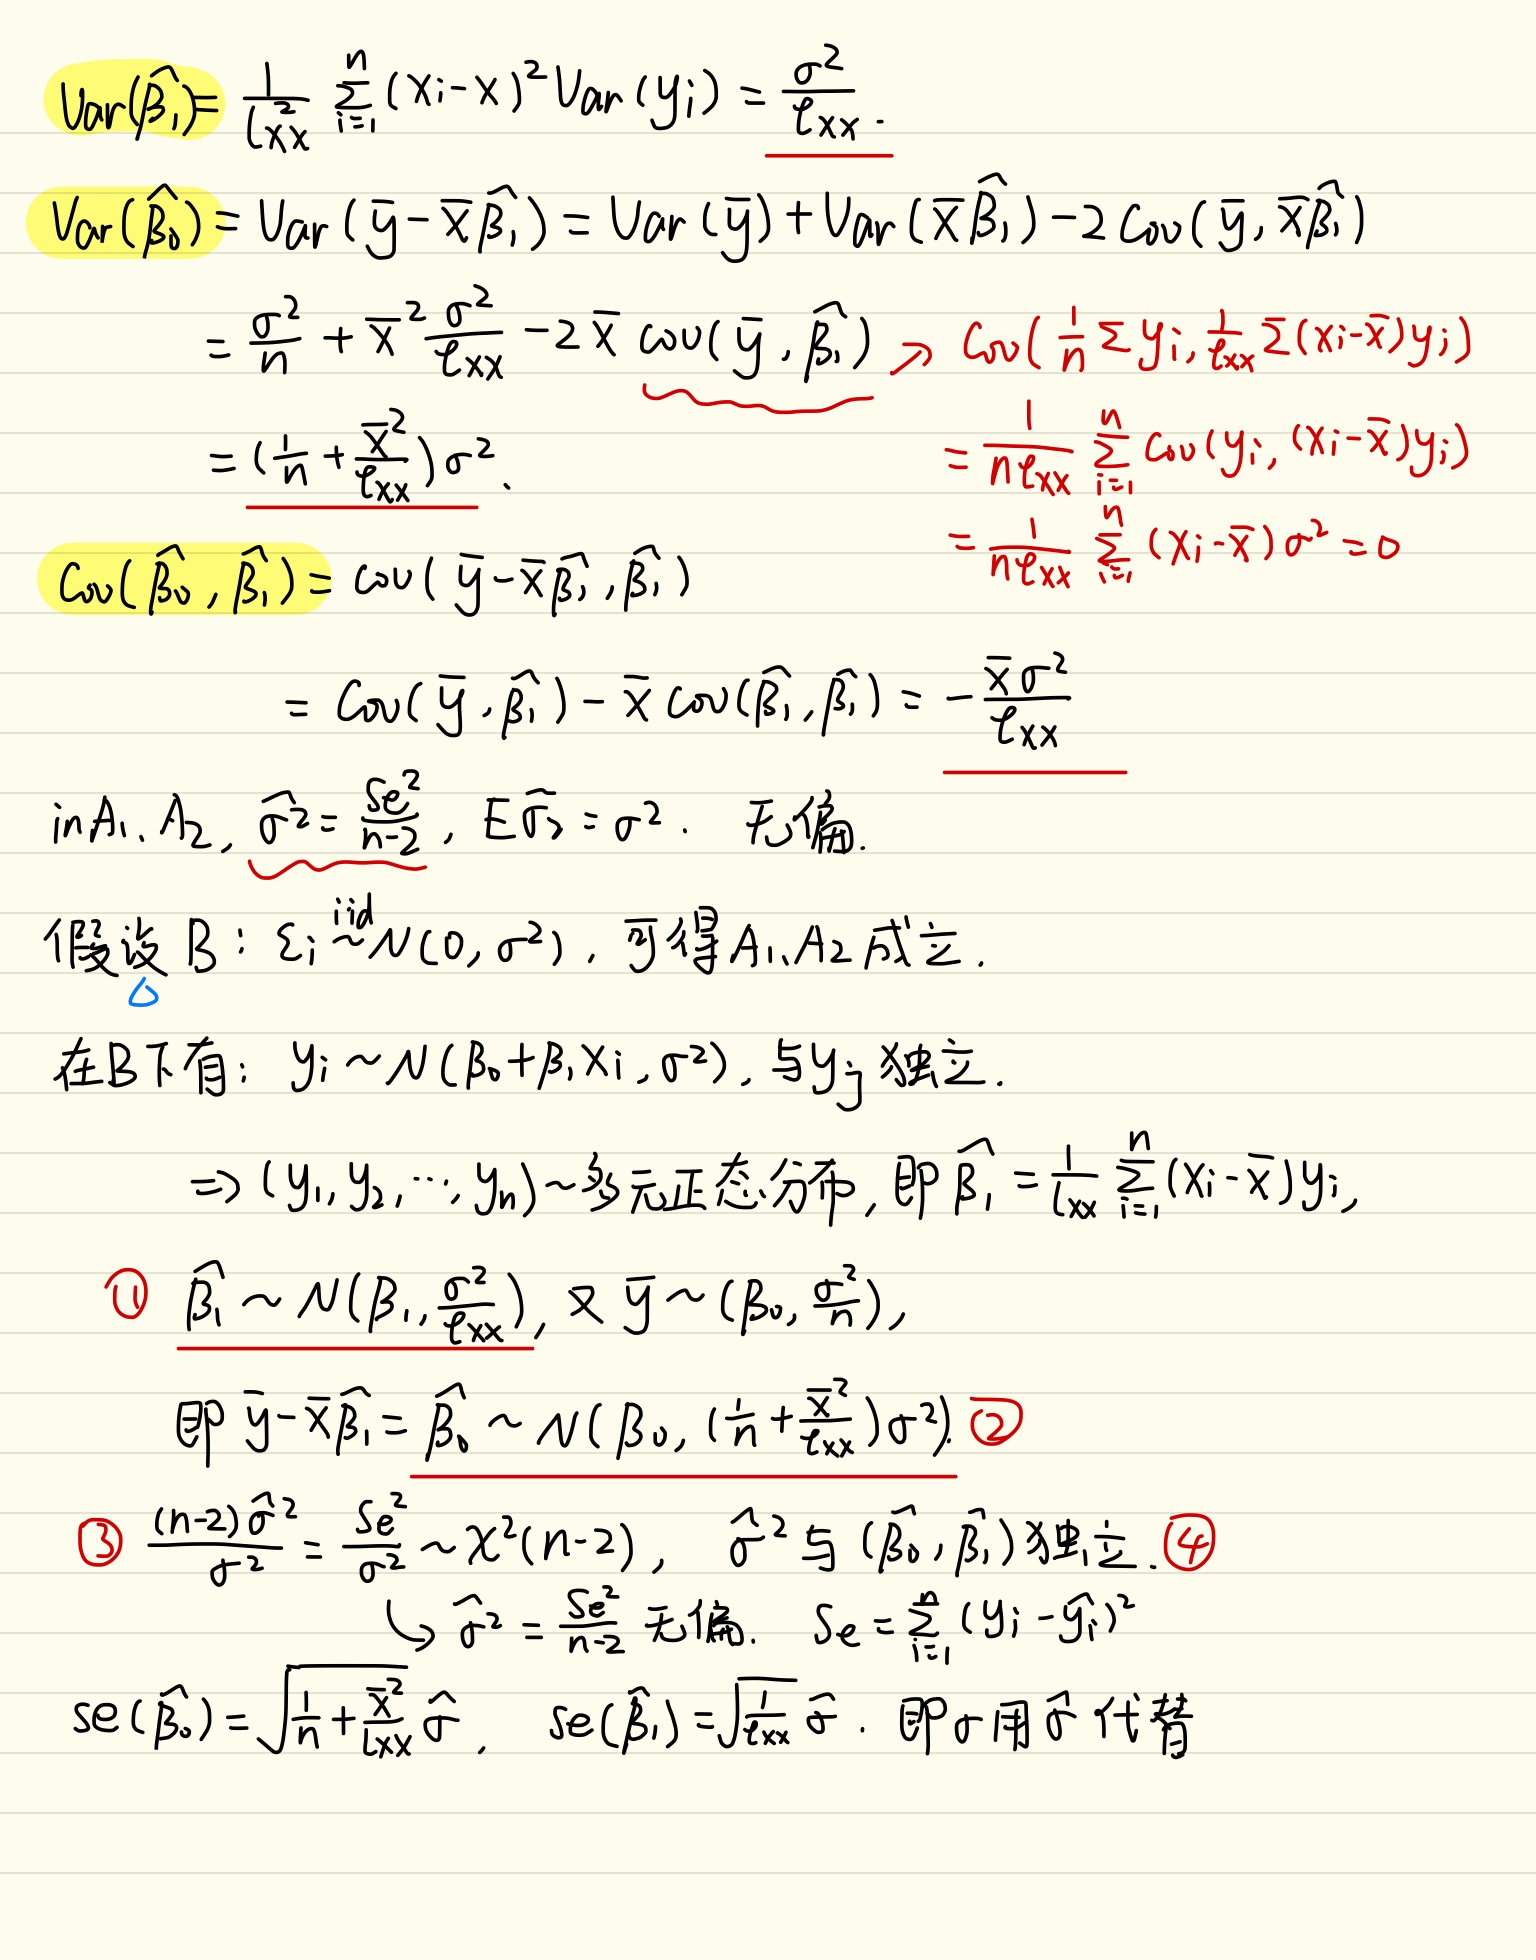 Var(β̂₁) = 1/l²xx Σⁿᵢ₌₁ (xᵢ-x)² Var(yᵢ) = σ²/ℓxx.
Var(β̂₀) = Var(ȳ - x̄β̂₁) = Var(ȳ) + Var(x̄β̂₁) - 2Cov(ȳ, x̄β̂₁)
= σ²/n + x̄² σ²/ℓxx - 2x̄ cov(ȳ, β̂₁) → Cov(1/n Σyᵢ, 1/ℓxx Σ(xᵢ-x̄)yᵢ)
= 1/(nℓxx) Σⁿᵢ₌₁ Cov(yᵢ, (xᵢ-x̄)yᵢ)
= (1/n + x̄²/ℓxx)σ².
= 1/(nℓxx) Σⁿᵢ₌₁ (xᵢ-x̄)σ² = 0
Cov(β̂₀, β̂₁) = cov(ȳ - x̄β̂₁, β̂₁)
= Cov(ȳ, β̂₁) - x̄ cov(β̂₁, β̂₁) = - x̄σ²/ℓxx
in A₁、A₂, σ̂² = Se²/(n-2), Eσ̂₂ = σ². 无偏.
假设 B: εᵢ iid~ N(0, σ²), 可得 A₁、A₂ 成立.
在B下有: yᵢ ~ N(β₀+β₁xᵢ, σ²), 与 yⱼ 独立.
⇒ (y₁, y₂, ⋯, yₙ) ~ 多元正态分布, 即 β̂₁ = 1/lxx Σⁿᵢ₌₁ (xᵢ-x̄)yᵢ,
① β̂₁ ~ N(β₁, σ²/ℓxx), 又 ȳ ~ (β₀, σ²/n),
即 ȳ - x̄β̂₁ = β̂₀ ~ N(β₀, (1/n + x̄²/ℓxx)σ²). ②
③ (n-2)σ̂²/σ² = Se²/σ² ~ χ²(n-2), σ̂² 与 (β̂₀, β̂₁) 独立. ④
↳ σ̂² = Se²/(n-2) 无偏. Se = Σⁿᵢ₌₁ (yᵢ - ŷᵢ)²
se(β̂₀) = √(1/n + x̄²/lxx) σ̂, se(β̂₁) = √(1/ℓxx) σ̂. 即σ用σ̂代替